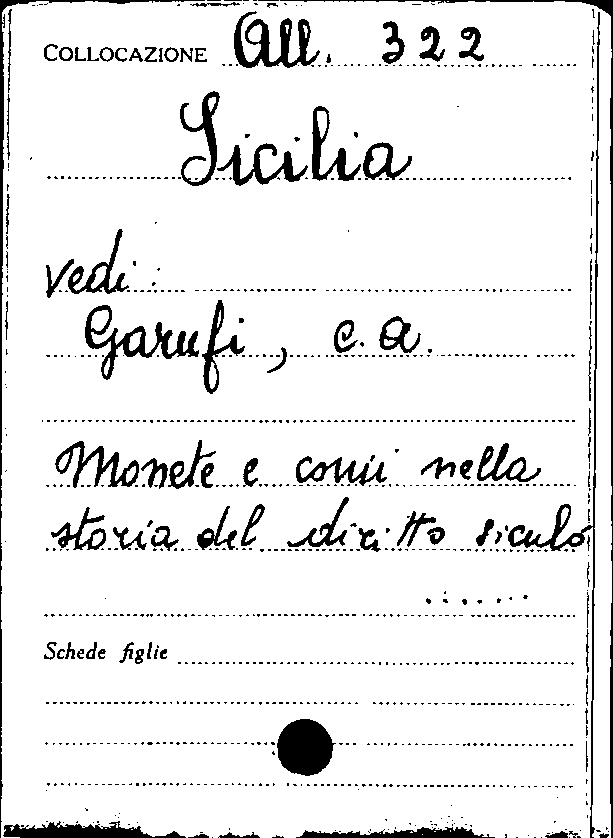 COLLOCAZIONE All. 322
Sicilia
vedi:
Garufi, C.A.
Monete e conii nella
storia del diritto siculo
.......
Schede figlie